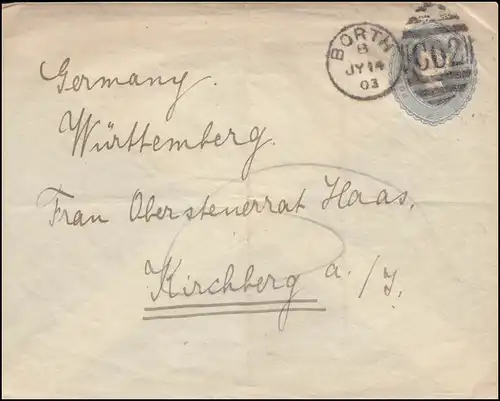 BORTH
B
JY 14
03
C02
Germany.
Württemberg.
Frau Obersteuerrat Haas,
Kirchberg a./J.